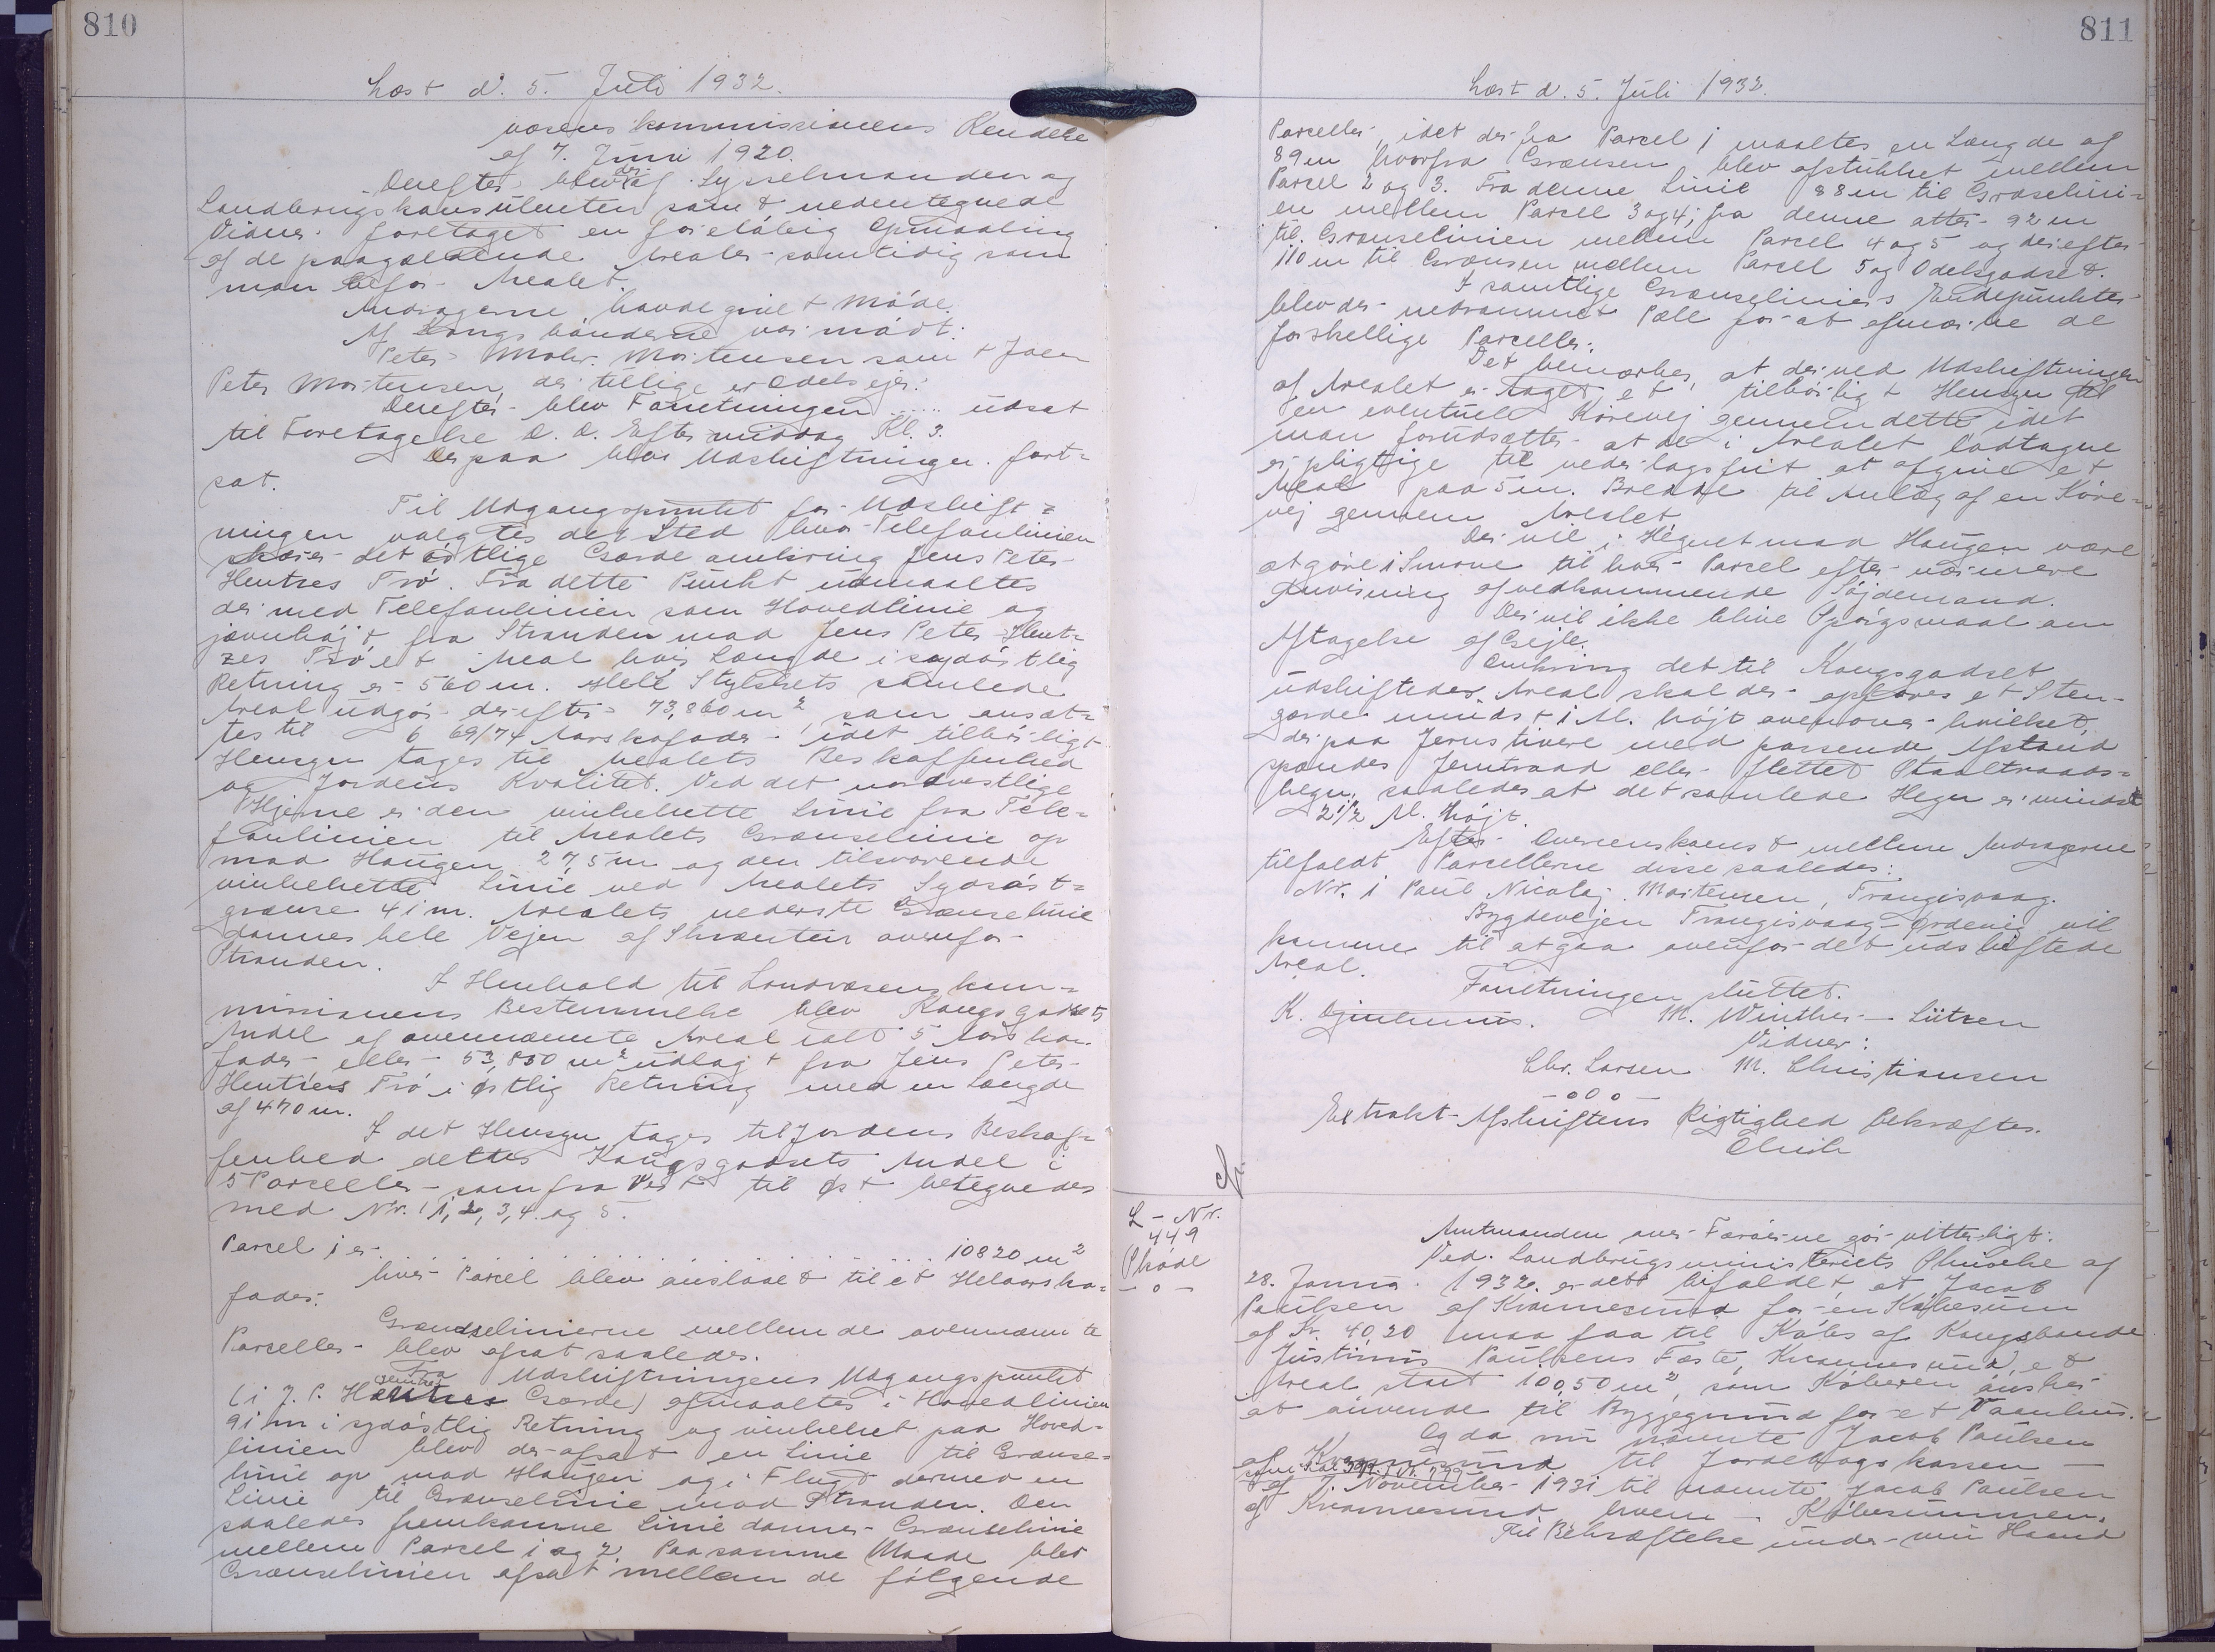 810
Læst d. 5. Juli 1932.
væsenskommissionens Kendelse
af 7. Juni 1920.
Derefter blev der af Sysselmanden og
Landbrugskonsulenten samt nedentegnede
Vidner foretaget en foreløbig Opmaaling
af de paagældende Arealer samtidig som
man befor Arealet.
Andragerne havde givet Møde.
Af Kongsbønderne var mødt:
Peter Mohr Mortensen samt Joen
Peter Mortensen, der tillige er Odelsejer.
Derefter blev Forretningen ...... udsat
til Foretagelse d. d. Eftermiddag Kl. 3.
Derpaa blev Udskiftningen fort=
sat.
Til Udgangspunktet for Udskift=
ningen valgtes det Sted hvor Telefonlinien
skærer det østlige Gærde omkring Jens Peter
Hentzes Trø. Fra dette Punkt udmaaltes
der med Telefonlinien som Hovedlinie og
jævnhøjt fra Stranden mod Jens Peter Hent=
zes Trø et Areal hvis Længde i sydøstlig
Retning er 560 m. Hele Stykkets samlede
Areal udgør derefter 73,860 m², som ansæt=
tes til 6 69/74 Aarskofoder idet tilbørligt
Hensyn tages til Arealets Beskaffenhed
og Jordens Kvalitet. Ved det nordvestlige
Hjørne er den vinkelrette Linie fra Tele=
fonlinien til Arealets Grænselinie op
mod Haugen 27,5 m og den tilsvarende
vinkelrette Linie ved Arealets Sydøst=
grænse 41 m. Arealets nederste Grænselinie
dannes hele Vejen af Skrænten ovenfor
Stranden.
I Henhold til Landvæsenskom=
missionens Bestemmelse blev Kongsgodsets
Andel af ovennævnte Areal ialt 5 Aarsko=
foder eller 53,850 m² udlagt fra Jens Peter
Hentzes Trø i østlig Retning med en Længde
af 470 m.
I det Hensyn tages til Jordens Beskaf=
fenhed deltes Kongsgodsets Andel i
5 Parceller som fra Vest til Øst betegnedes
med Nr. 1, 2, 3, 4 og 5.
Parcel 1 er . . . . . . . . . . . . 10820 m²
hver Parcel blev anslaaet til et Helaarsko=
foder.
Grændselinierne mellem de ovennævnte
Parceller blev afsat saaledes.
Fra Udskiftningens Udgangspunkt
(i J. P. Hentzes Gærde) afmaaltes i Hovedlinien
91 m i sydøstlig Retning og vinkelret paa Hoved=
linien blev der afsat en Linie til Grænse=
linie op mod Haugen og i Flugt dermed en
Linie til Grænselinie mod Stranden. Den
saaledes fremkomne Linie danner Grænselinie
mellem Parcel 1 og 2. Paa samme Maade blev
Grænselinien afsat mellem de følgende
811
Læst d. 5. Juli 1932.
Parceller, idet der fra Parcel 1 maaltes en Længde af
89 m hvorfra Grænsen blev afstukket mellem
Parcel 2 og 3. Fra denne Linie 88 m til Grænselini=
en mellem Parcel 3 og 4; fra denne atter 92 m
til Grænselinien mellem Parcel 4 og 5 og derefter
110 m til Grænsen mellem Parcel 5 og Odelsgodset.
I samtlige Grænseliniers Endepunkter
blev der nedrammet Pæle for at afmærke de
forskellige Parceller.
Det bemærkes, at der ved Udskiftningen
af Arealet er taget et tilbørligt Hensyn til
en eventuel Kørevej gennem dette idet
man forudsætter at de i Arealet lodtagne
er pligtige til vederlagsfrit at afgive et
Areal paa 5 m. Bredde til Anlæg af en Køre=
vej gennem Arealet
Der vil i Hegnet mod Haugen være
at gøre 1 Smove til hver Parcel efter nærmere
Anvisning af vedkommende Søjdemand.
Der vil ikke blive Spørgsmaal om
Aftagelse af Gejle.
Omkring det til Kongsgodset
udskiftede Areal skal der opføres et Sten=
gærde mindst 1 Al. højt ovenover hvilket,
der paa Jernstivere med passende Afstand
spændes Jerntraad eller flettet Staaltraads=
hegn, saaledes at det samlede Hegn er mindst
2 1/2 Al. højt.
Efter Overenskomst mellem Andragerne
tilfaldt Parcellerne disse saaledes:
Nr. 1 Poul Nicolaj Mortensen, Trangisvaag.
Bygdevejen Trangisvaag-Ørdevig vil
komme til at gaa ovenfor det udskiftede
Areal.
Forretningen sluttet.
K. Djurhuus. M. Winther-Lützen
Vidner:
Chr. Larsen M. Christiansen
-o0o-
Extrakt-Afskriftens Rigtighed bekræftes.
cfr.
L-Nr.
449
Skøde
-o-
Amtmanden over Færøerne gør vitterligt:
Ved Landbrugsministeriets Skrivelse af
28. Januar 1932 er det bifaldet, at Jacob
Poulsen af Kvannesund for en Købesum
af Kr. 40,20 maa faa til Købs af Kongsbonde
Justinus Poulsens Fæste, Kvannesund, et
Areal, stort 100,50 m², som Køberen ønsker
at anvende til Byggegrund for et Vaanhus.
Og da nu nævnte Jacob Poulsen
af Kvannesund til Jordebogskassen —
af 7. November 1931 til nævnte Jacob Poulsen
af Kvannesund hvem — Købesummen.
Til Bekræftelse under min Haand